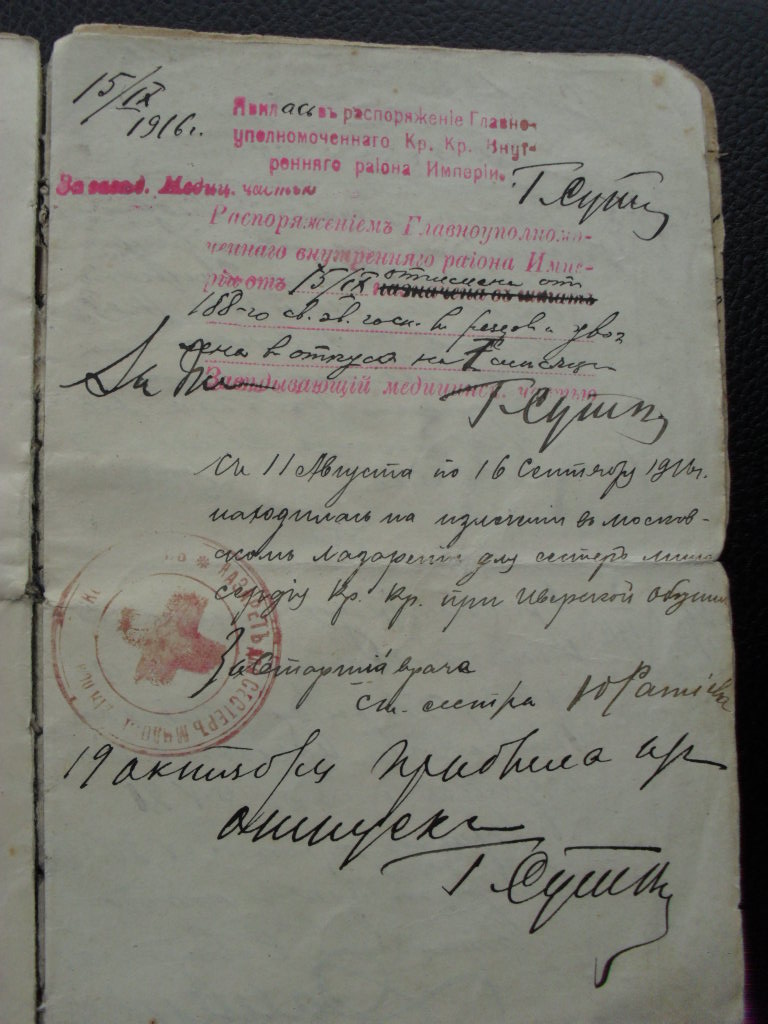 15/IX
1916 г.
Явилась въ распоряженіе Главно-
уполномоченнаго Кр. Кр. Внут-
ренняго раіона Имперіи.
За завѣд. Медиц. частью
Распоряженіемъ Главноуполномо-
ченнаго внутренняго раіона Импе-
ріи отъ 15/IX назначена въ отчислена отъ
188-го св. эв. госп. въ резервъ и уво
лена въ отпускъ на 1 мѣсяцъ
За Завѣдывающій медицинск. частью
Съ 11 Августа по 16 Сентября 1916 г.
находилась на излеченіи въ москов-
скомъ лазаретѣ для сестеръ мило
сердія Кр. Кр. при Иверской общин
За Старшаго врача
Ст. сестра
СЕСТЕРЪ МИЛО
19 октября прибыла из
отпуска